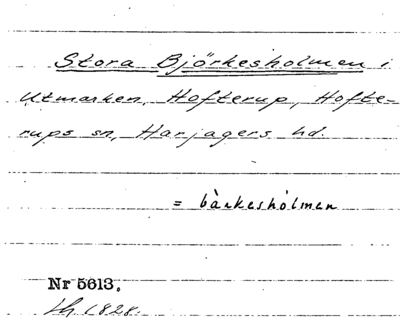 Stora Björkesholmen i
Utmarken, Hofterup, Hofte-
rups sn, Harjagers hd.
= bàrkeshólmen
Nr 5613.
1828.